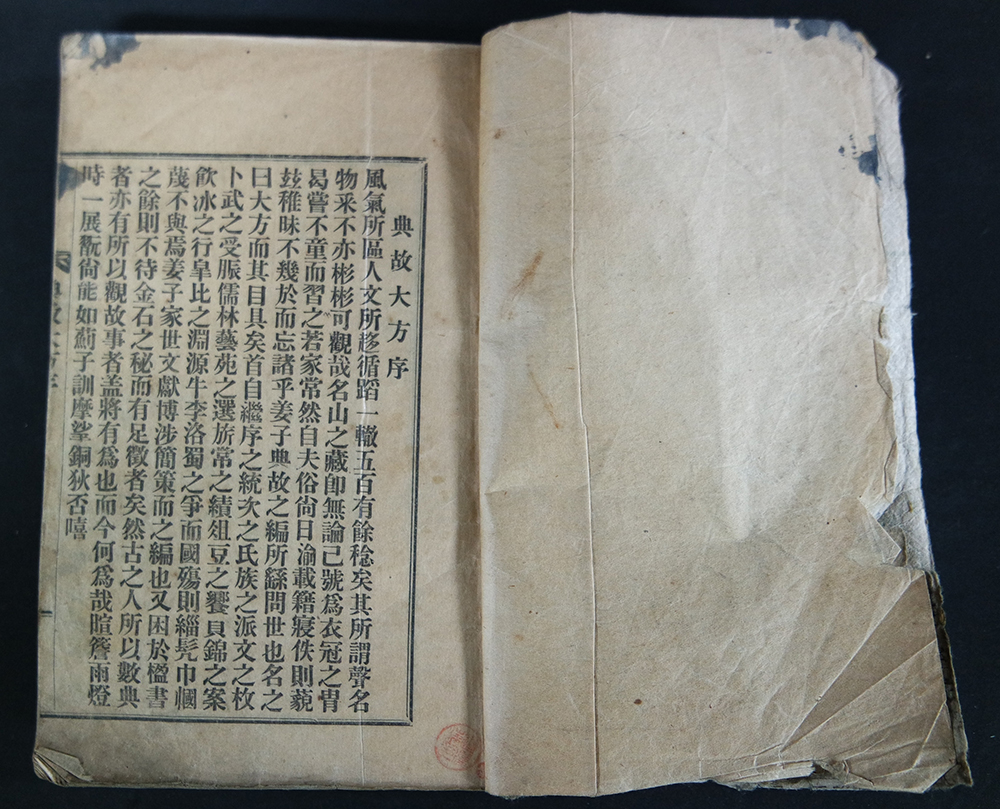 典故大方序
風氣所區人文所移循蹈一轍五百有餘稔矣其所謂聲名
物采不亦彬彬可觀哉名山之藏卽無論已號爲衣冠之胄
曷嘗不童而習之若家常然自夫俗尙日渝載籍寢佚則藐
玆稚昧不幾於而忘諸乎姜子典故之編所繇問世也名之
曰大方而其目具矣首自繼序之統次之氏族之派文之枚
卜武之受脤儒林藝苑之選旂常之績俎豆之饗貝錦之案
飮冰之行皐比之淵源牛李洛蜀之爭而國殤則緇髡巾幗
蔑不與焉姜子家世文獻博涉簡策而之編也又困於楹書
之餘則不待金石之秘而有足徵者矣然古之人所以數典
者亦有所以觀故事者盖將有爲也而今何爲哉暄簷雨燈
時一展翫尙能如薊子訓摩挲銅狄否嘻